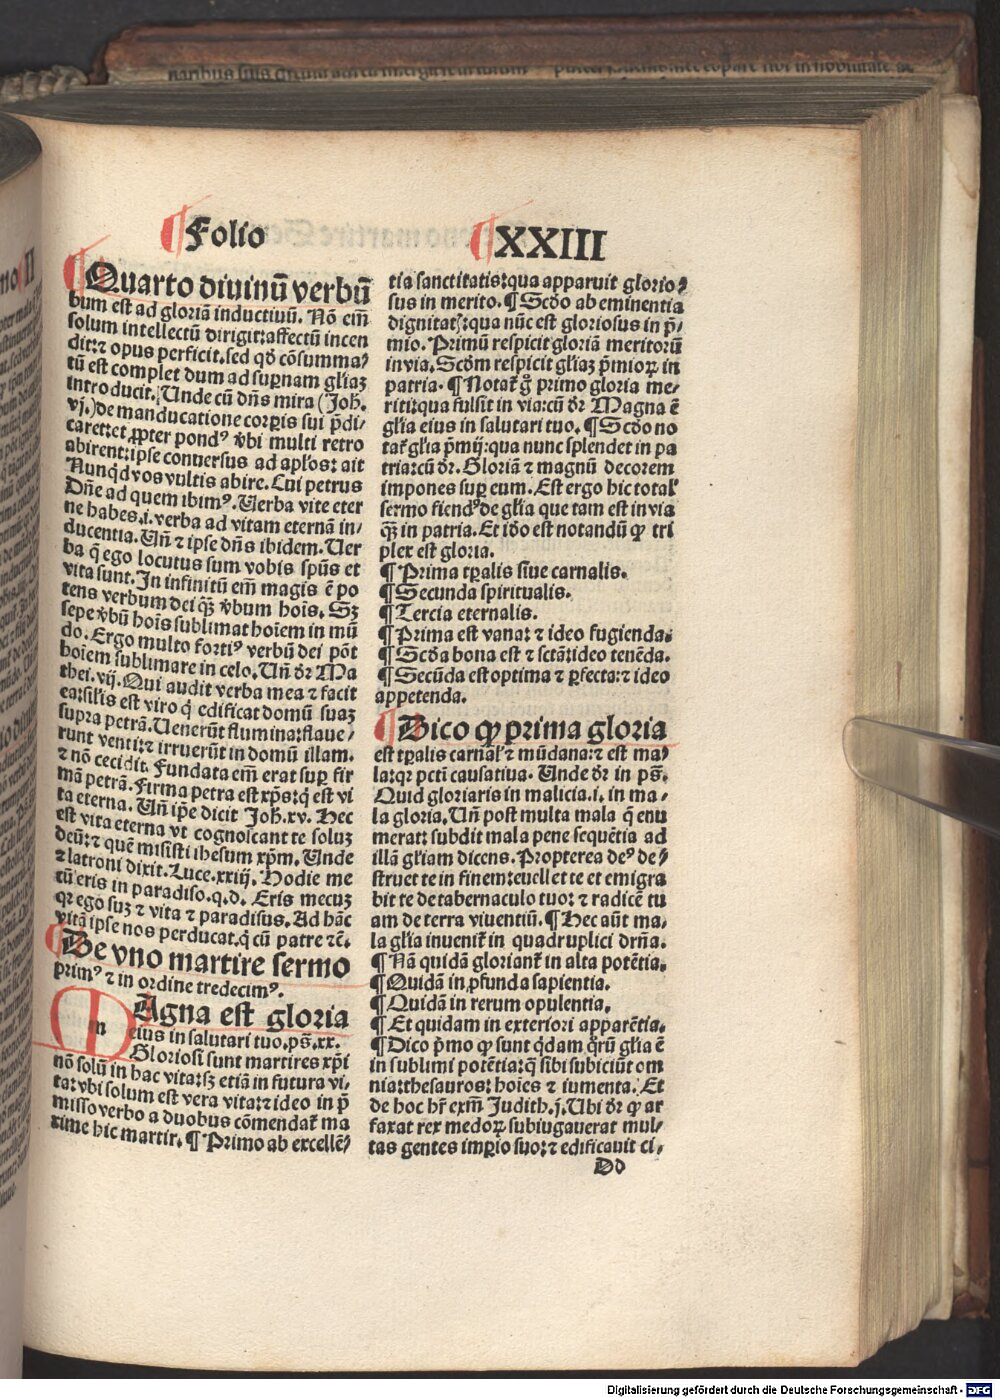 ¶Folio ¶XXIII
¶Quarto diuinũ verbũ
bum est ad gloriã inductiuũ. Nõ em̃
solum intellectũ dirigit: affectũ incen
dit: ⁊ opus perficit. sed qđ cõsumma⸗
tũ est complet dum ad suꝑnam gl̃iaꝫ
introducit. Unde cũ dñs mira (Joh.
vj.) de manducatione corꝑis sui p̃di⸗
caret: et ꝓpter pondꝰ ṽbi multi retro
abirent: ipse conuersus ad apl̃os: ait
Nunqd vos vultis abire. Cui petrus
Dñe ad quem ibimꝰ. Uerba vite eter
ne habes .i. verba ad vitam eternã in⸗
ducentia. Uñ ⁊ ipse dñs ibidem. Uer
ba q̃ ego locutus sum vobis spũs et
vita sunt. In infinitũ em̃ magis ẽ po
tens verbum dei qꝫ ṽbum hoĩs. Sꝫ
sepe ṽbũ hoĩs sublimat hoĩem in mũ
do. Ergo multo fortiꝰ verbũ dei põt
hoĩem sublimare in celo. Uñ dr̃ Ma
thei .vij. Qui audit verba mea ⁊ facit
ea: sĩlis est viro q̇ edificat domũ suaꝫ
supra petrã. Uenerũt flumina: flaue⸗
runt venti: ⁊ irruerũt in domũ illam.
⁊ nõ cecidit. Fundata em̃ erat suꝑ fir
mã petrã. Firma petra est xp̃s: q̇ est vi
ta eterna. Uñ ip̃e dicit Joh. xv. Hec
est vita eterna vt cognoscant te soluꝫ
deũ: ⁊ quẽ misisti ihesum xp̃m. Unde
⁊ latroni dixit. Luce. xxiij. Hodie me
cũ eris in paradiso. q. d. Eris mecuꝫ
qꝛ ego suꝫ ⁊ vita ⁊ paradisus. Ad hãc
vitã ipse nos perducat. q̇ cũ patre ⁊c̃.
¶De vno martire sermo
primꝰ ⁊ in ordine tredecimꝰ.
m Agna est gloria
eius in salutari tuo. ps̃. xx.
Gloriosi sunt martires xp̃i
nõ solũ in hac vita: sꝫ etiã in futura vi⸗
ta: vbi solum est vera vita: ⁊ ideo in p̃
misso verbo a duobus cõmendat̃ ma
xime hic martir. ¶Primo ab excellẽ⸗
tia sanctitatis: qua apparuit glorio⸗
sus in merito. ¶Scđo ab eminentia
dignitatꝭ: qua nũc est gloriosus in p̃⸗
mio. Primũ respicit gloriã meritorũ
in via. Scđm respicit gl̃iaꝫ p̃mioꝝ in
patria. ¶Notat̃ g̊ primo gloria me⸗
riti: qua fulsit in via: cũ dr̃ Magna ẽ
gl̃ia eius in salutari tuo. ¶Scđo no
tat̃ gl̃ia p̃mij: qua nunc splendet in pa
tria: cũ dr̃. Gloriã ⁊ magnũ decorem
impones suꝑ eum. Est ergo hic total̕
sermo fiendꝰ de gl̃ia que tam est in via
qꝫ̃ in patria. Et iđo est notandũ ꝙ tri
plex est gloria.
¶Prima tꝑalis siue carnalis.
¶Secunda spiritualis.
¶Tercia eternalis.
¶Prima est vana: ⁊ ideo fugienda.
¶Scđa bona est ⁊ sctã: ideo tenẽda.
¶Secũda est optima ⁊ ꝑfecta: ⁊ ideo
appetenda.
¶Dico ꝙ prima gloria
est tꝑalis carnal̕ ⁊ mũdana: ⁊ est ma⸗
la: qꝛ pctĩ causatiua. Unde dr̃ in ps̃.
Quid gloriaris in malicia .i. in ma⸗
la gloria. Uñ post multa mala q̃ enu
merat: subdit mala pene sequẽtia ad
illã gl̃iam dicens. Propterea deꝰ de⸗
struet te in finem: euellet te et emigra
bit te de tabernaculo tuo: ⁊ radicẽ tu
am de terra viuentiũ. ¶Hec aũt ma⸗
la gl̃ia inuenit̃ in quadruplici drñã.
¶Nã quidã gloriant̃ in alta potẽtia.
¶Quidã in ꝓfunda sapientia.
¶Quidã in rerum opulentia.
¶Et quidam in exteriori apparẽtia.
¶Dico p̃mo ꝙ sunt q̇dam qũrũ gl̃ia ẽ
in sublimi potẽtia: q̇ sibi subiciũt om
nia: thesauros: hoĩes ⁊ iumenta. Et
de hoc hr̃ exm̃ Judith .j. Ubi dr̃ ꝙ ar
faxat rex medoꝝ subiugauerat mul⸗
tas gentes imꝑio suo: ⁊ edificauit ci⸗
Dd